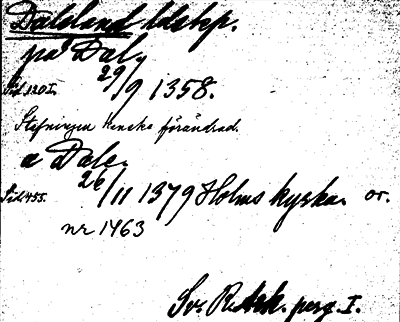 Dalsland ldskp.
på Dal.
Sid. 120 I. 29/9 1358.
Stafningen kanske förändrad.
a Dale.
Sid. 455. 26/11 1379 Holms kyrka. or.
nr 1463
Sv. R. Ark. perg. I.